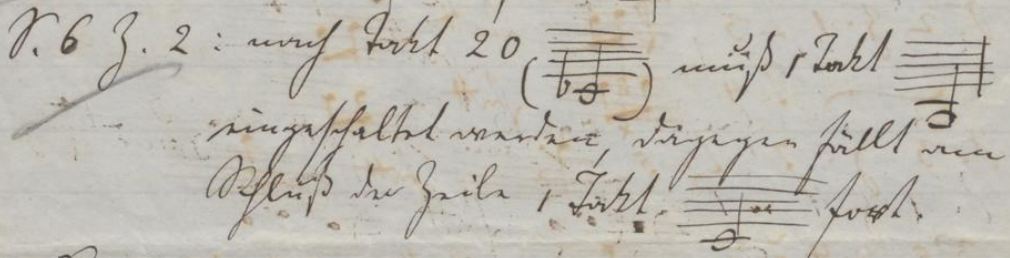 S. 6 Z. 2: nach Takt 20 ( ) muß 1 Takt
eingeschaltet werden, dagegen fällt am
Schluß der Zeile 1 Takt fort.